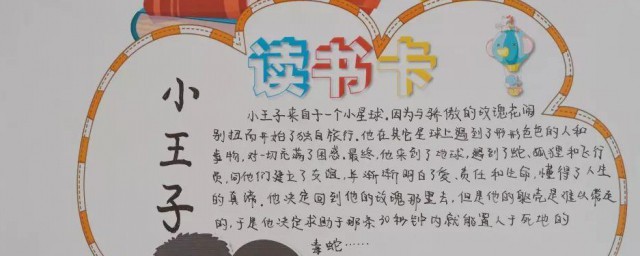 读书卡
小王子
小王子来自于一个小星球。因为与骄傲的玫瑰花闹
别扭而开始了独自旅行。他在其它星球上遇到了形形色色的人和
事物,对一切充满了困惑。最终,他来到了地球,遇到了蛇、狐狸和飞行
员,同他们建立了友谊,并渐渐明白了爱、责任和生命,懂得了人生
的真谛。他决定回到他的玫瑰那里去,但是他的躯壳是难以带走
的,于是他决定求助于那条30秒钟内就能置人于死地的
毒蛇……